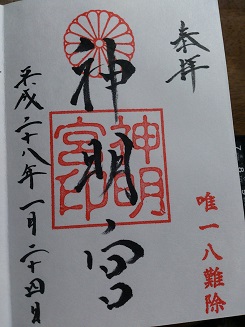 奉拝
唯一八難除
神明宮
神明
宮印
平成二十八年一月二十四日